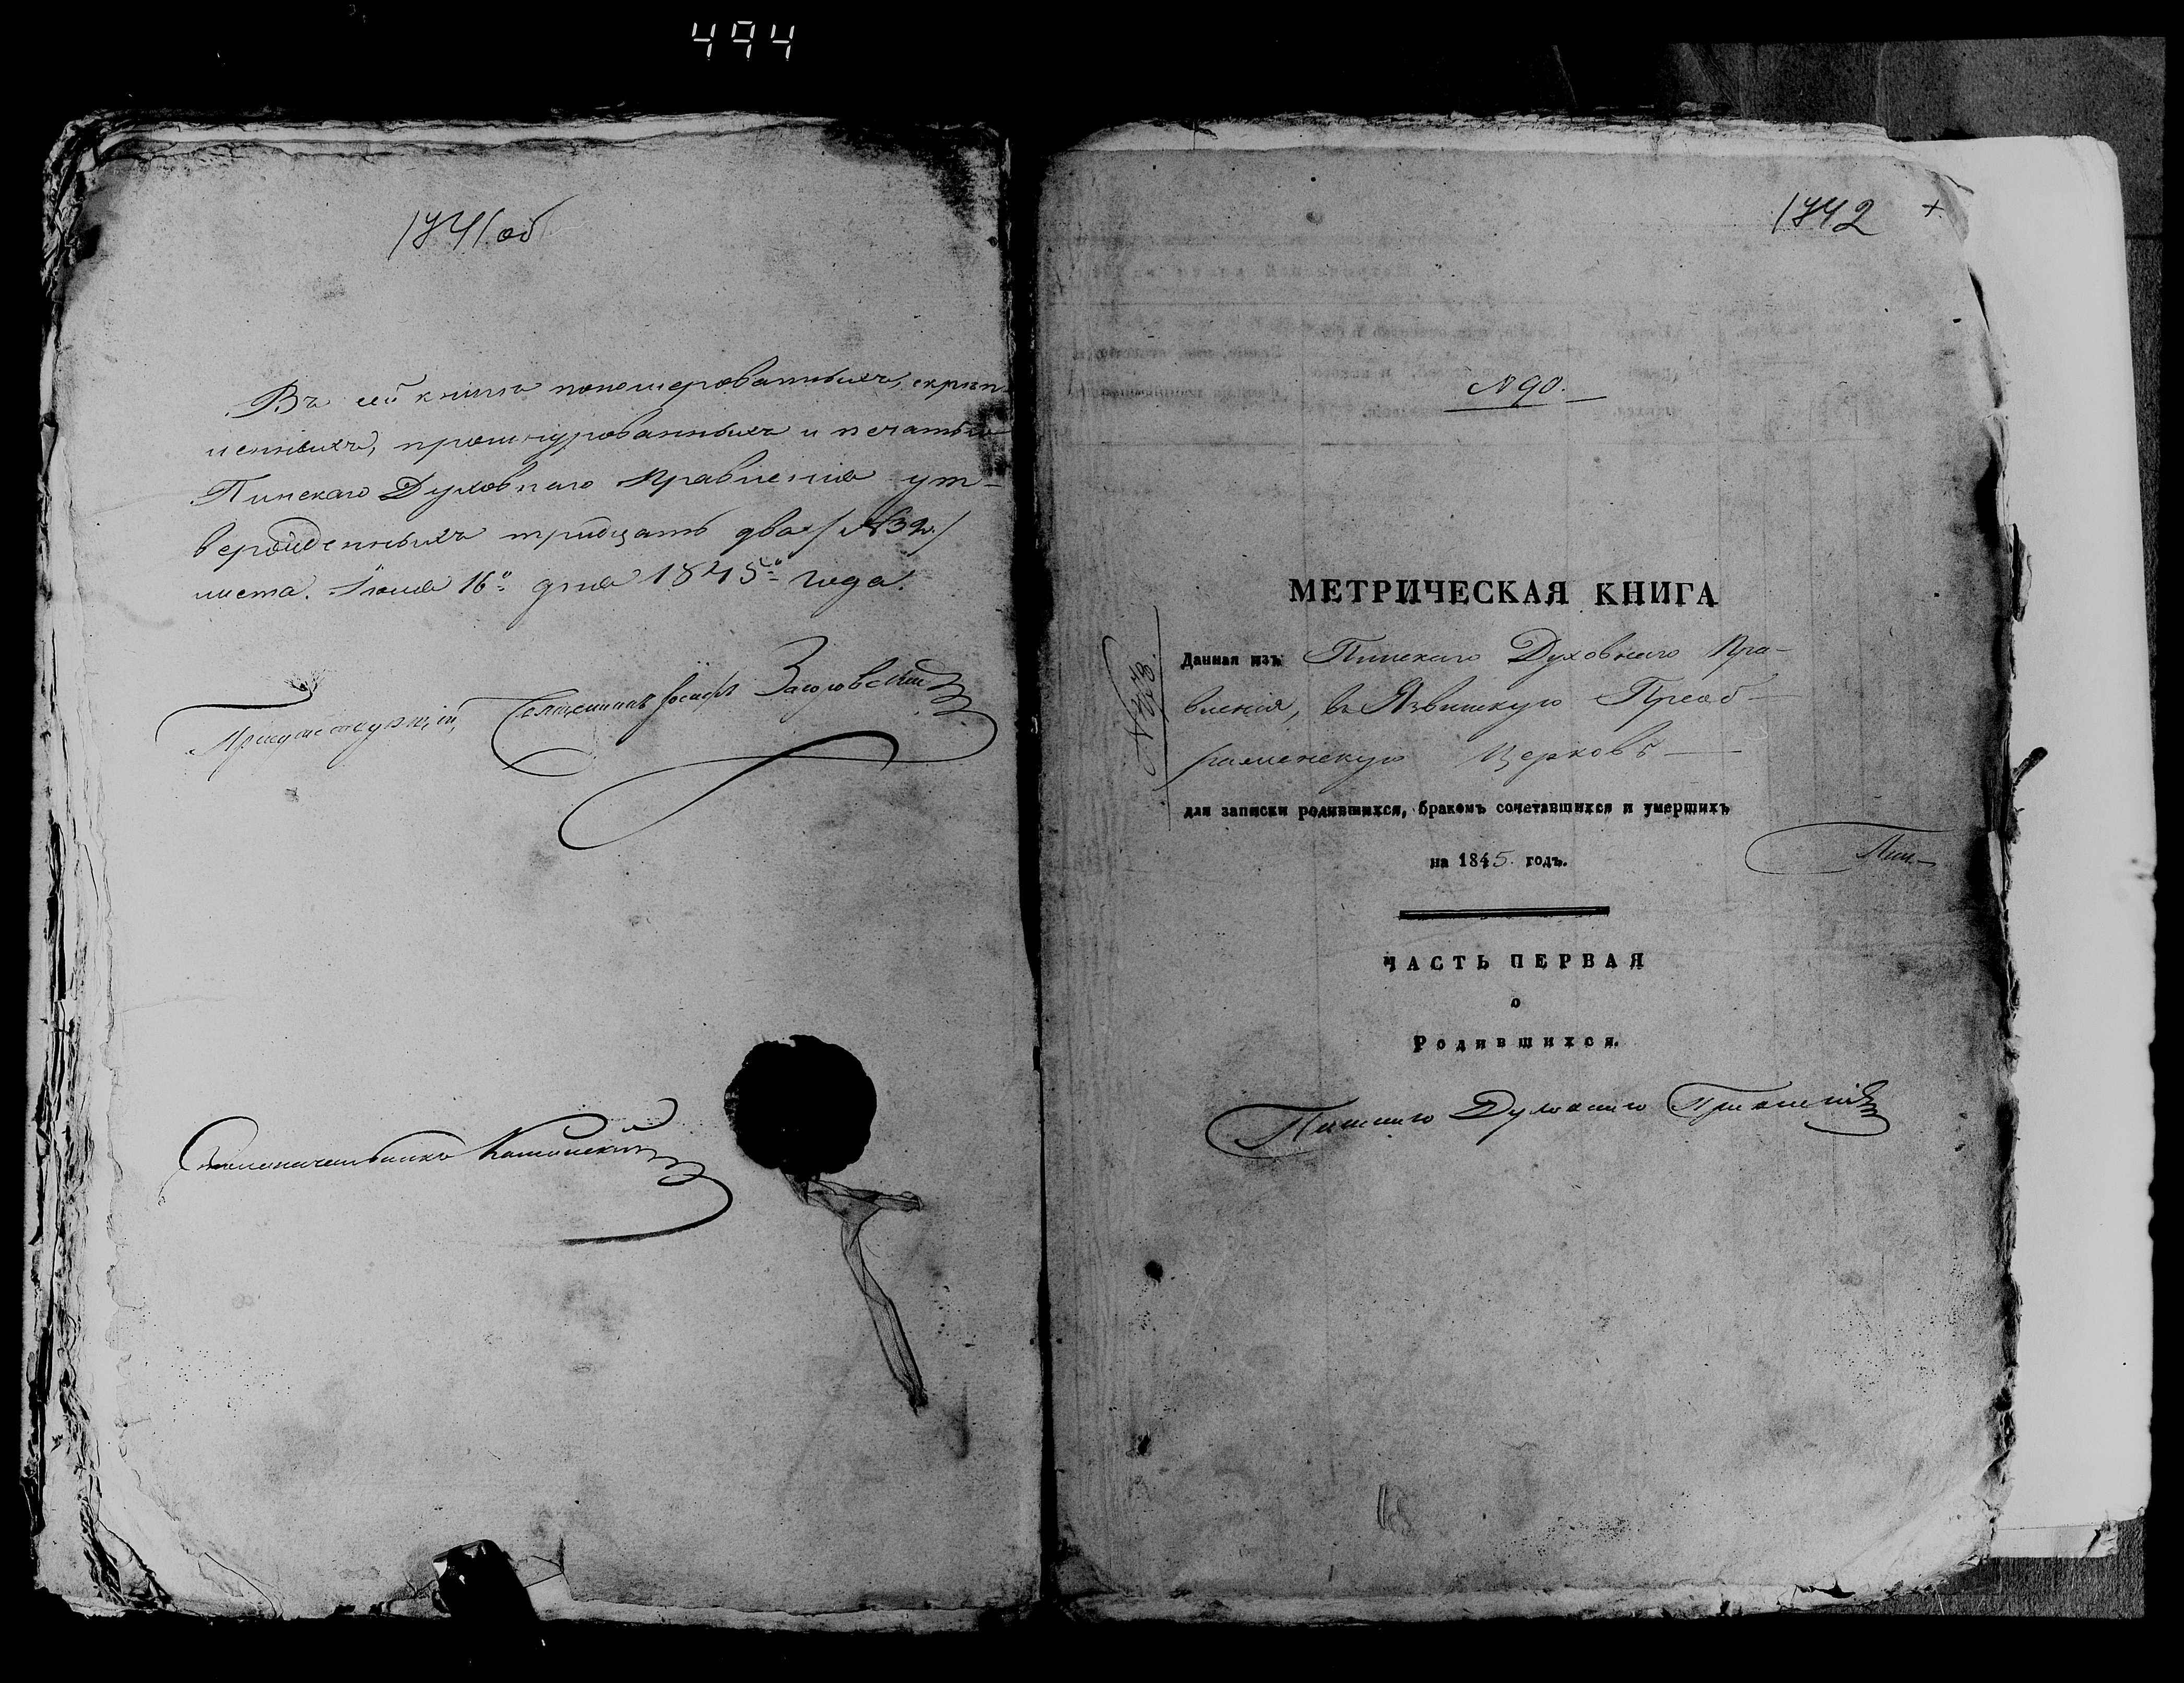 494
1741 об
Въ сей книгѣ пономерованныхъ, скрѣп-
ленныхъ, прошнурованныхъ и печатью
Пинскаго Духовнаго Правленія ут-
вержденныхъ тридцать два /№32./
листа. Іюня 16º дня 1845го года.
Присутствующій, Священникъ Іосифъ
Столоначальникъ
1742
N 90.
МЕТРИЧЕСКАЯ КНИГА
Данная изъ Пинскаго Духовнаго Пра-
вленія, въ Язвинскую Преоб-
раженскую Церковь
для записки родившихся, бракомъ сочетавшихся и умершихъ
на 1845. годъ.
Пин-
ЧАСТЬ ПЕРВАЯ
о
Родившихся.
Пинскаго Духовнаго Правленія